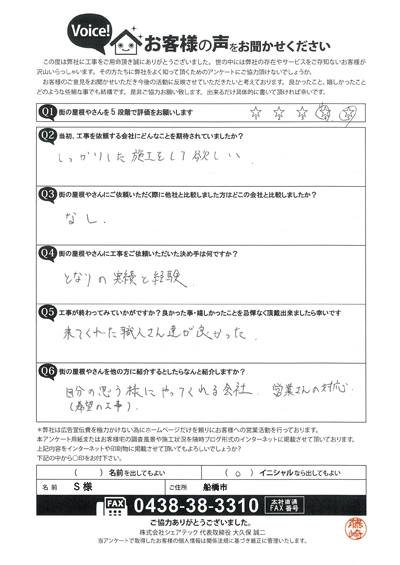 Voice!
お客様の声をお聞かせください
この度は弊社に工事をご用命頂き誠にありがとうございました。世の中には弊社の存在やサービスをご存知ないお客様が
沢山いらっしゃいます。その方たちに弊社をよく知って頂くためのアンケートにご協力頂けないでしょうか。
お客様のご意見をお聞かせいただき今後の活動に反映させていただきたいと考えております。良かったこと、嬉しかったこと
どのような些細な事でも結構です。是非ご協力お願い致します。出来るだけ具体的に書いて頂ければ幸いです。
Q1 街の屋根やさんを5段階で評価をお願いします ☆ ☆ ☆ ☆ ☆
Q2 当初、工事を依頼する会社にどんなことを期待されていましたか？
しっかりした施工をして欲しい.
Q3 街の屋根やさんにご依頼いただく際に他社と比較しました方はどこの会社と比較しましたか？
なし.
Q4 街の屋根やさんに工事をご依頼いただいた決め手は何ですか？
となりの実績と経験.
Q5 工事が終わってみていかがですか？良かった事・嬉しかったことを忌憚なく頂戴出来ましたら幸いです
来てくれた職人さん達が良かった.
Q6 街の屋根やさんを他の方に紹介するとしたらなんと紹介しますか？
自分の思う様にやってくれる会社. 営業さんの対応.
(希望の工事).
＊弊社は広告宣伝費を極力かけない為にホームページだけを頼りにお客様への営業活動を行っております。
本アンケート用紙またはお客様宅の調査風景や施工状況を随時ブログ形式のインターネットに掲載させて頂いております。
上記内容をインターネットや印刷物に掲載させて頂いてもよろしいでしょうか？
下記の中から○印をお付け下さい。
（　）名前を出してもよい （ ○ ）イニシャルなら出してもよい
名前 S 様 ご住所 船橋市
FAX 0438-38-3310 本社直通 FAX番号
ご協力ありがとうございました。
株式会社シェアテック 代表取締役 大久保 誠二
当アンケートで取得したお客様の個人情報は関係法規に基づき厳正に管理いたします。
篠崎